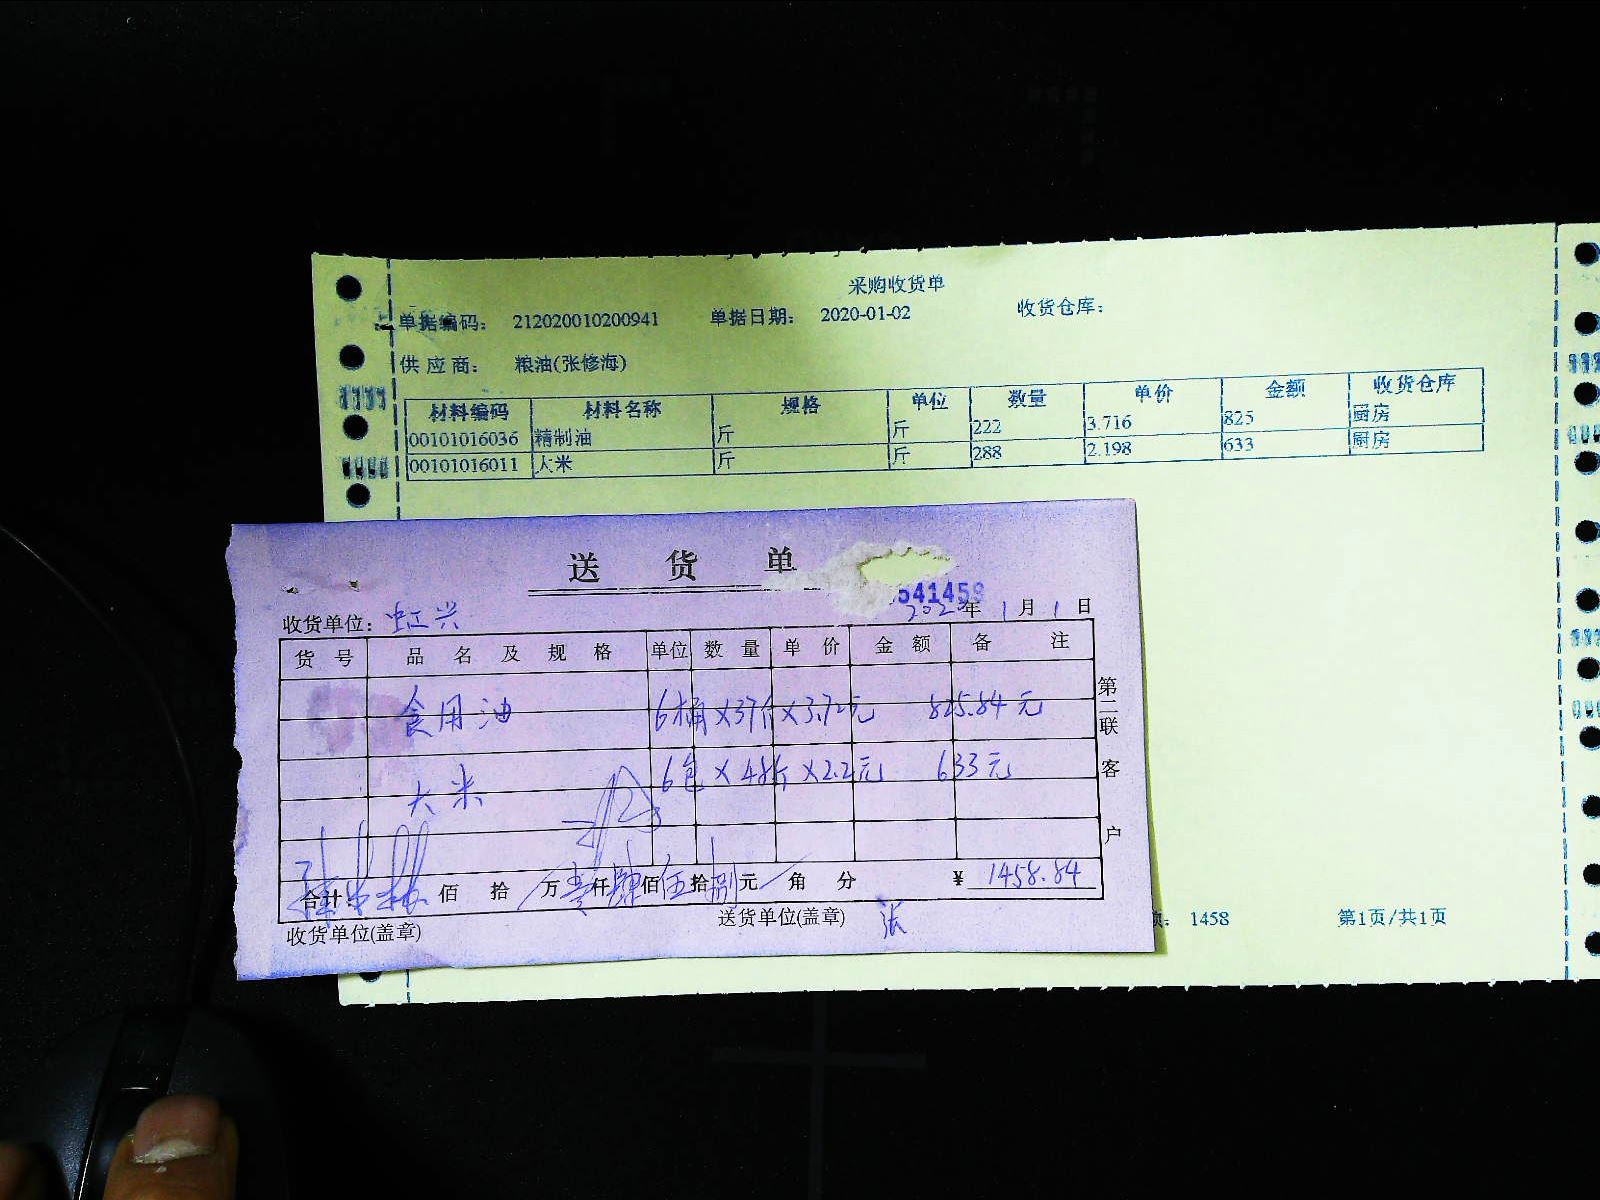 采购收货单
单据编码： 212020010200941 单据日期： 2020-01-02 收货仓库：
供应商： 粮油(张修海)
材料编码 材料名称 规格 单位 数量 单价 金额 收货仓库
00101016036 精制油 斤 斤 222 3.716 825 厨房
00101016011 大米 斤 斤 288 2.198 633 厨房
送货单
541459
收货单位：虹兴 2020年1月1日
货号 品名及规格 单位 数量 单价 金额 备注
食用油 6桶×37斤×3.72元 825.84元
大米 6包×48斤×2.2元 633元
合计： 佰 拾 万壹仟肆佰伍拾捌元 角 分 ¥ 1458.84
收货单位(盖章) 送货单位(盖章) 张
第二联 客户
1458 第1页/共1页